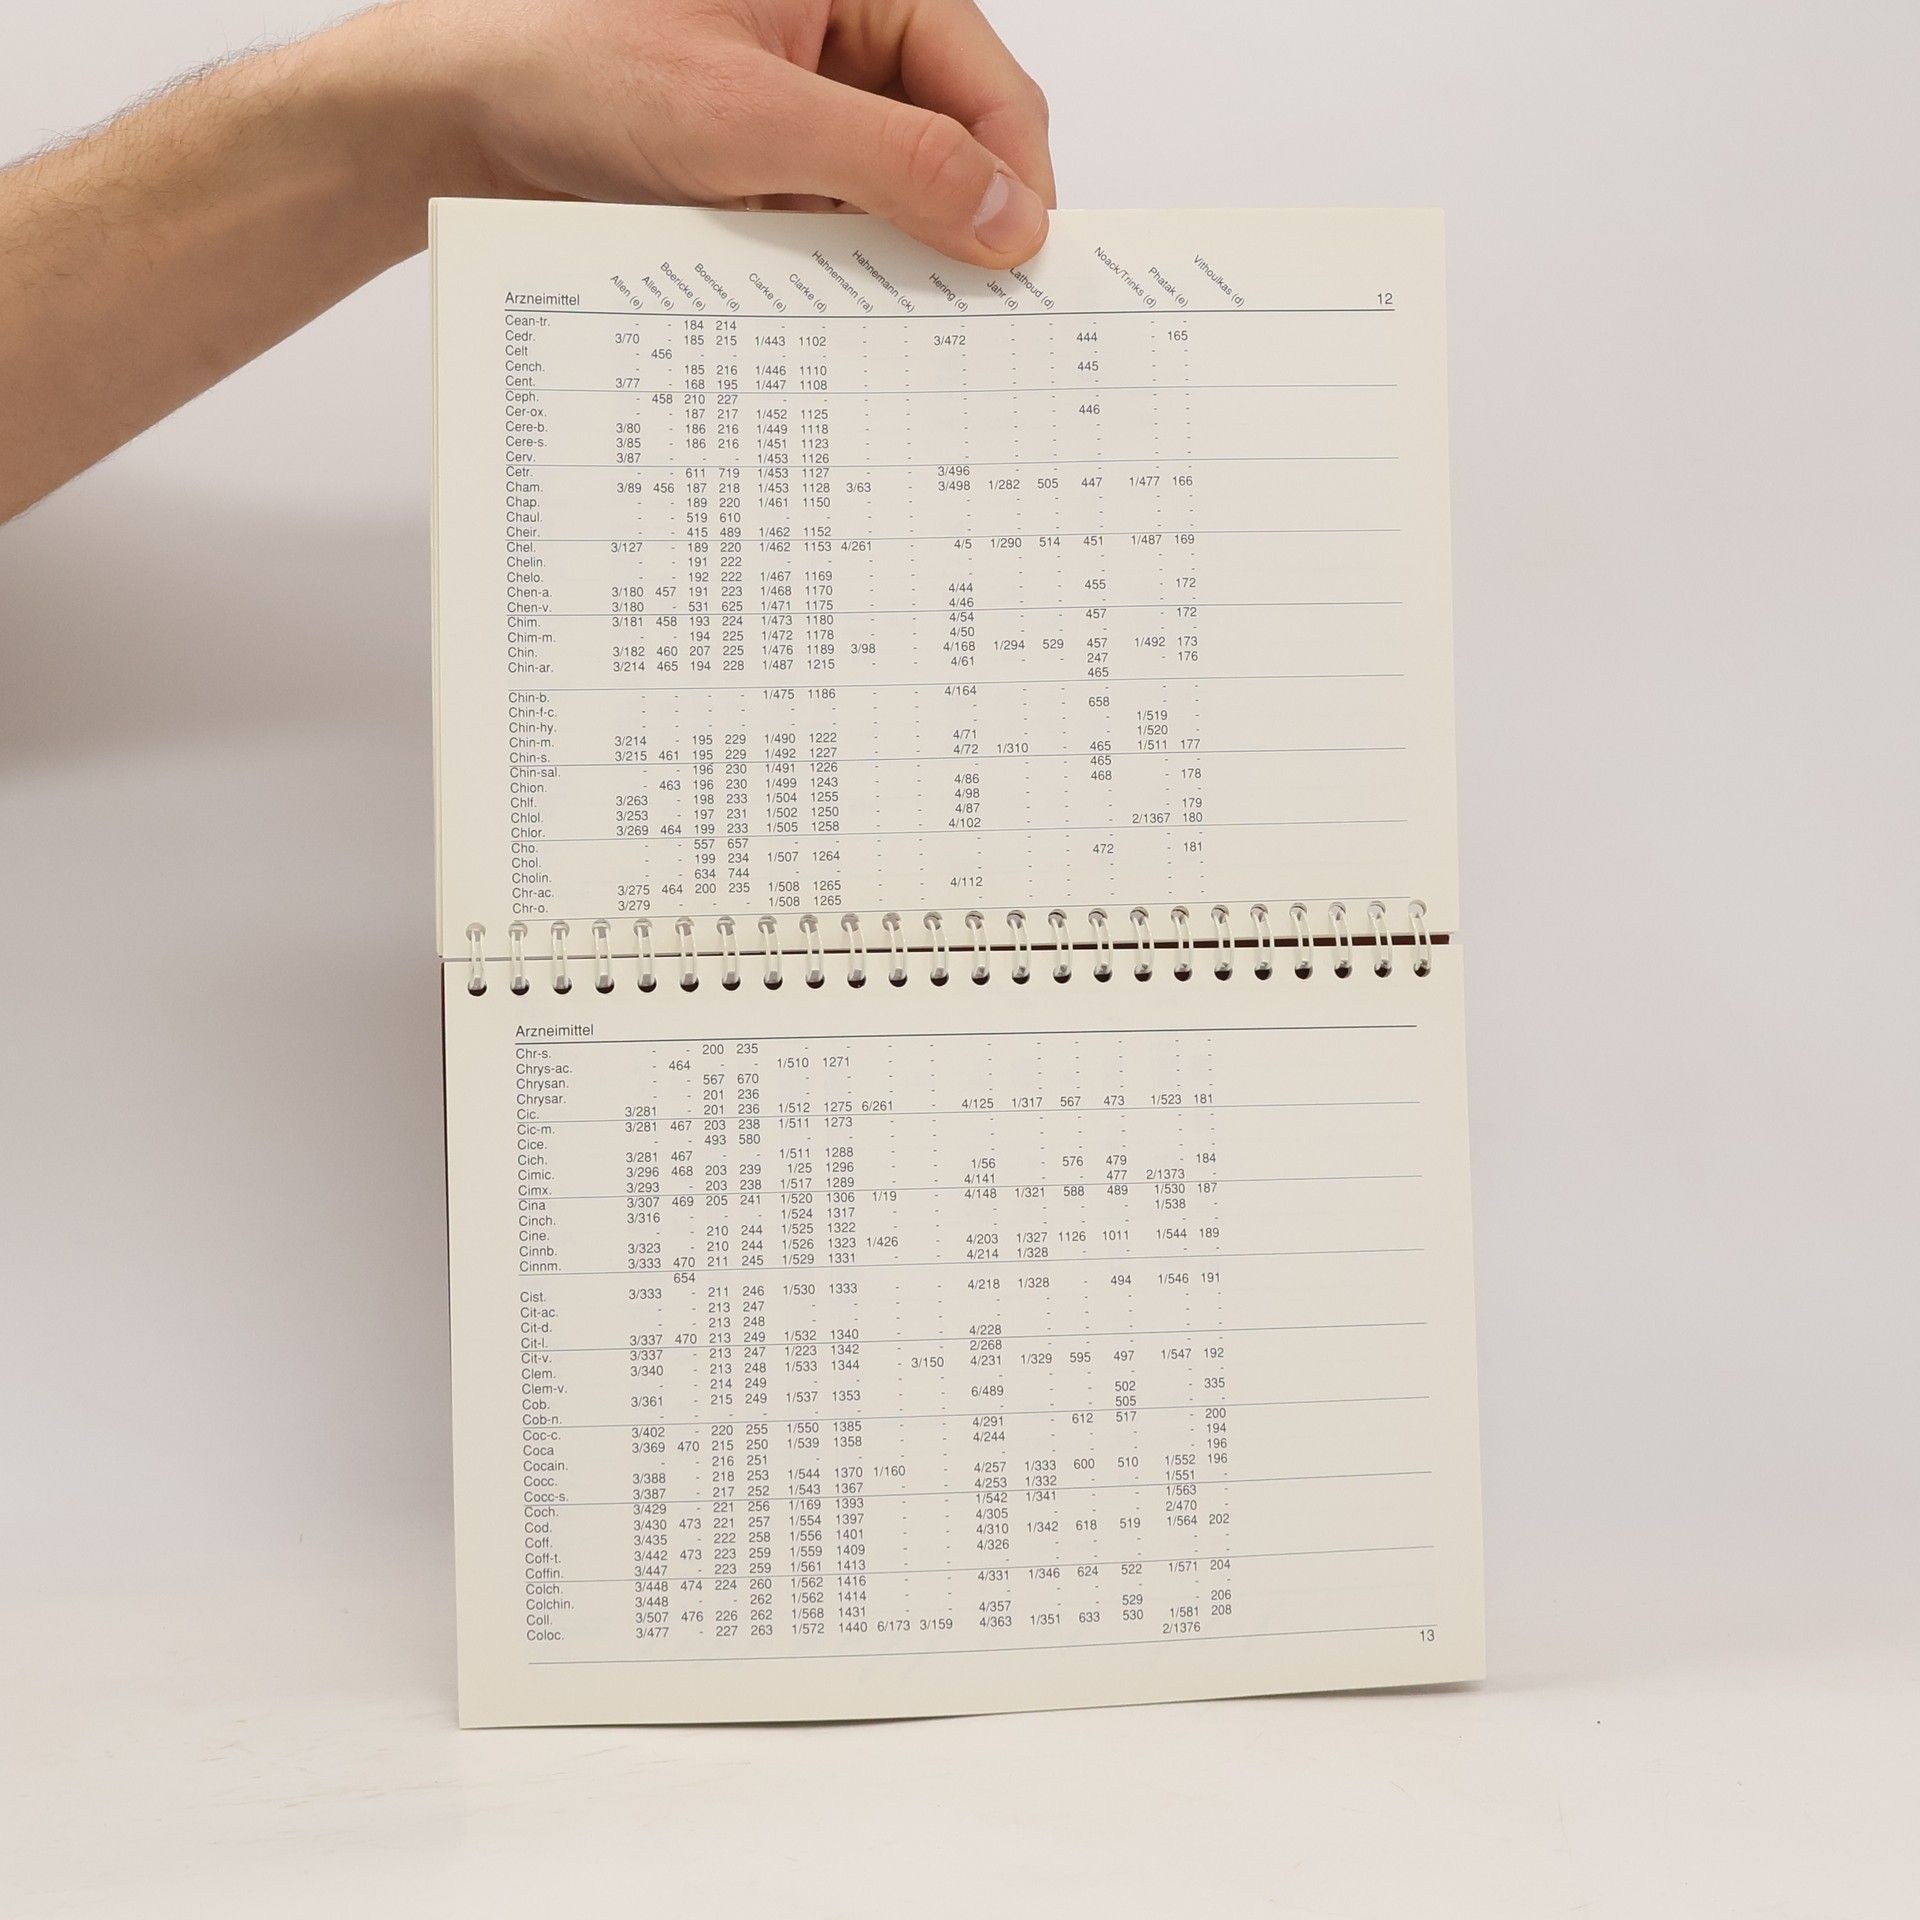 Allen (e) Allen (e) Boericke (e) Boericke (d) Clarke (e) Clarke (d) Hahnemann (ra) Hahnemann (ck) Hering (d) Jahr (d) Lathoud (d) Noack/Trinks (d) Phatak (e) Vithoulkas (d)
Arzneimittel 12
Cean-tr. - - 184 214 - - - - - - - - - -
Cedr. 3/70 - 185 215 1/443 1102 - - 3/472 - - 444 - 165
Celt - 456 - - - - - - - - - - - -
Cench. - - 185 216 1/446 1110 - - - - - 445 - -
Cent. 3/77 - 168 195 1/447 1108 - - - - - - - -
Ceph. - 458 210 227 - - - - - - - - - -
Cer-ox. - - 187 217 1/452 1125 - - - - - 446 - -
Cere-b. 3/80 - 186 216 1/449 1118 - - - - - - - -
Cere-s. 3/85 - 186 216 1/451 1123 - - - - - - - -
Cerv. 3/87 - - - 1/453 1126 - - - - - - - -
Cetr. - - 611 719 1/453 1127 - - 3/496 - - - - -
Cham. 3/89 456 187 218 1/453 1128 3/63 - 3/498 1/282 505 447 1/477 166
Chap. - - 189 220 1/461 1150 - - - - - - - -
Chaul. - - 519 610 - - - - - - - - - -
Cheir. - - 415 489 1/462 1152 - - - - - - - -
Chel. 3/127 - 189 220 1/462 1153 4/261 - 4/5 1/290 514 451 1/487 169
Chelin. - - 191 222 - - - - - - - - - -
Chelo. - - 192 222 1/467 1169 - - - - - - - -
Chen-a. 3/180 457 191 223 1/468 1170 - - 4/44 - - 455 - 172
Chen-v. 3/180 - 531 625 1/471 1175 - - 4/46 - - - - -
Chim. 3/181 458 193 224 1/473 1180 - - 4/54 - - 457 - 172
Chim-m. - - 194 225 1/472 1178 - - 4/50 - - - - -
Chin. 3/182 460 207 225 1/476 1189 3/98 - 4/168 1/294 529 457 1/492 173
Chin-ar. 3/214 465 194 228 1/487 1215 - - 4/61 - - 247 - 176
465
Chin-b. - - - - 1/475 1186 - - 4/164 - - - - -
Chin-f-c. - - - - - - - - - - - 658 - -
Chin-hy. - - - - - - - - - - - - 1/519 -
Chin-m. 3/214 - 195 229 1/490 1222 - - 4/71 - - - 1/520 -
Chin-s. 3/215 461 195 229 1/492 1227 - - 4/72 1/310 - 465 1/511 177
Chin-sal. - - 196 230 1/491 1226 - - - - - 465 - -
Chion. - 463 196 230 1/499 1243 - - 4/86 - - 468 - 178
Chlf. 3/263 - 198 233 1/504 1255 - - 4/98 - - - - -
Chlol. 3/253 - 197 231 1/502 1250 - - 4/87 - - - - 179
Chlor. 3/269 464 199 233 1/505 1258 - - 4/102 - - - 2/1367 180
Cho. - - 557 657 - - - - - - - - - -
Chol. - - 199 234 1/507 1264 - - - - - 472 - 181
Cholin. - - 634 744 - - - - - - - - - -
Chr-ac. 3/275 464 200 235 1/508 1265 - - 4/112 - - - - -
Chr-o. 3/279 - - - 1/508 1265 - - - - - - - -
Arzneimittel
Chr-s. - - 200 235 - - - - - - - - - -
Chrys-ac. - 464 - - 1/510 1271 - - - - - - - -
Chrysan. - - 567 670 - - - - - - - - - -
Chrysar. - - 201 236 - - - - - - - - - -
Cic. 3/281 - 201 236 1/512 1275 6/261 - 4/125 1/317 567 473 1/523 181
Cic-m. 3/281 467 203 238 1/511 1273 - - - - - - - -
Cice. - - 493 580 - - - - - - - - - -
Cich. 3/281 467 - - 1/511 1288 - - - - - - - -
Cimic. 3/296 468 203 239 1/25 1296 - - 1/56 - 576 479 - 184
Cimx. 3/293 - 203 238 1/517 1289 - - 4/141 - - 477 2/1373 -
Cina 3/307 469 205 241 1/520 1306 1/19 - 4/148 1/321 588 489 1/530 187
Cinch. 3/316 - - - 1/524 1317 - - - - - - 1/538 -
Cine. - - 210 244 1/525 1322 - - - - - - - -
Cinnb. 3/323 - 210 244 1/526 1323 1/426 - 4/203 1/327 1126 1011 1/544 189
Cinnm. 3/333 470 211 245 1/529 1331 - - 4/214 1/328 - - - -
654
Cist. 3/333 - 211 246 1/530 1333 - - 4/218 1/328 - 494 1/546 191
Cit-ac. - - 213 247 - - - - - - - - - -
Cit-d. - - 213 248 - - - - - - - - - -
Cit-l. 3/337 470 213 249 1/532 1340 - - 4/228 - - - - -
Cit-v. 3/337 - 213 247 1/223 1342 - - 2/268 - - - - -
Clem. 3/340 - 213 248 1/533 1344 - 3/150 4/231 1/329 595 497 1/547 192
Clem-v. - - 214 249 - - - - - - - - - -
Cob. 3/361 - 215 249 1/537 1353 - - 6/489 - - 502 - 335
Cob-n. - - - - - - - - - - - 505 - -
Coc-c. 3/402 - 220 255 1/550 1385 - - 4/291 - 612 517 - 200
Coca 3/369 470 215 250 1/539 1358 - - 4/244 - - - - 194
Cocain. - - 216 251 - - - - - - - - - 196
Cocc. 3/388 - 218 253 1/544 1370 1/160 - 4/257 1/333 600 510 1/552 196
Cocc-s. 3/387 - 217 252 1/543 1367 - - 4/253 1/332 - - 1/551 -
Coch. 3/429 - 221 256 1/169 1393 - - 1/542 1/341 - - 1/563 -
Cod. 3/430 473 221 257 1/554 1397 - - 4/305 - - - 2/470 -
Coff. 3/435 - 222 258 1/556 1401 - - 4/310 1/342 618 519 1/564 202
Coff-t. 3/442 473 223 259 1/559 1409 - - 4/326 - - - - -
Coffin. 3/447 - 223 259 1/561 1413 - - - - - - - -
Colch. 3/448 474 224 260 1/562 1416 - - 4/331 1/346 624 522 1/571 204
Colchin. 3/448 - - 262 1/562 1414 - - - - - - - -
Coll. 3/507 476 226 262 1/568 1431 - - 4/357 - - 529 - 206
Coloc. 3/477 - 227 263 1/572 1440 6/173 3/159 4/363 1/351 633 530 1/581 208
2/1376
13